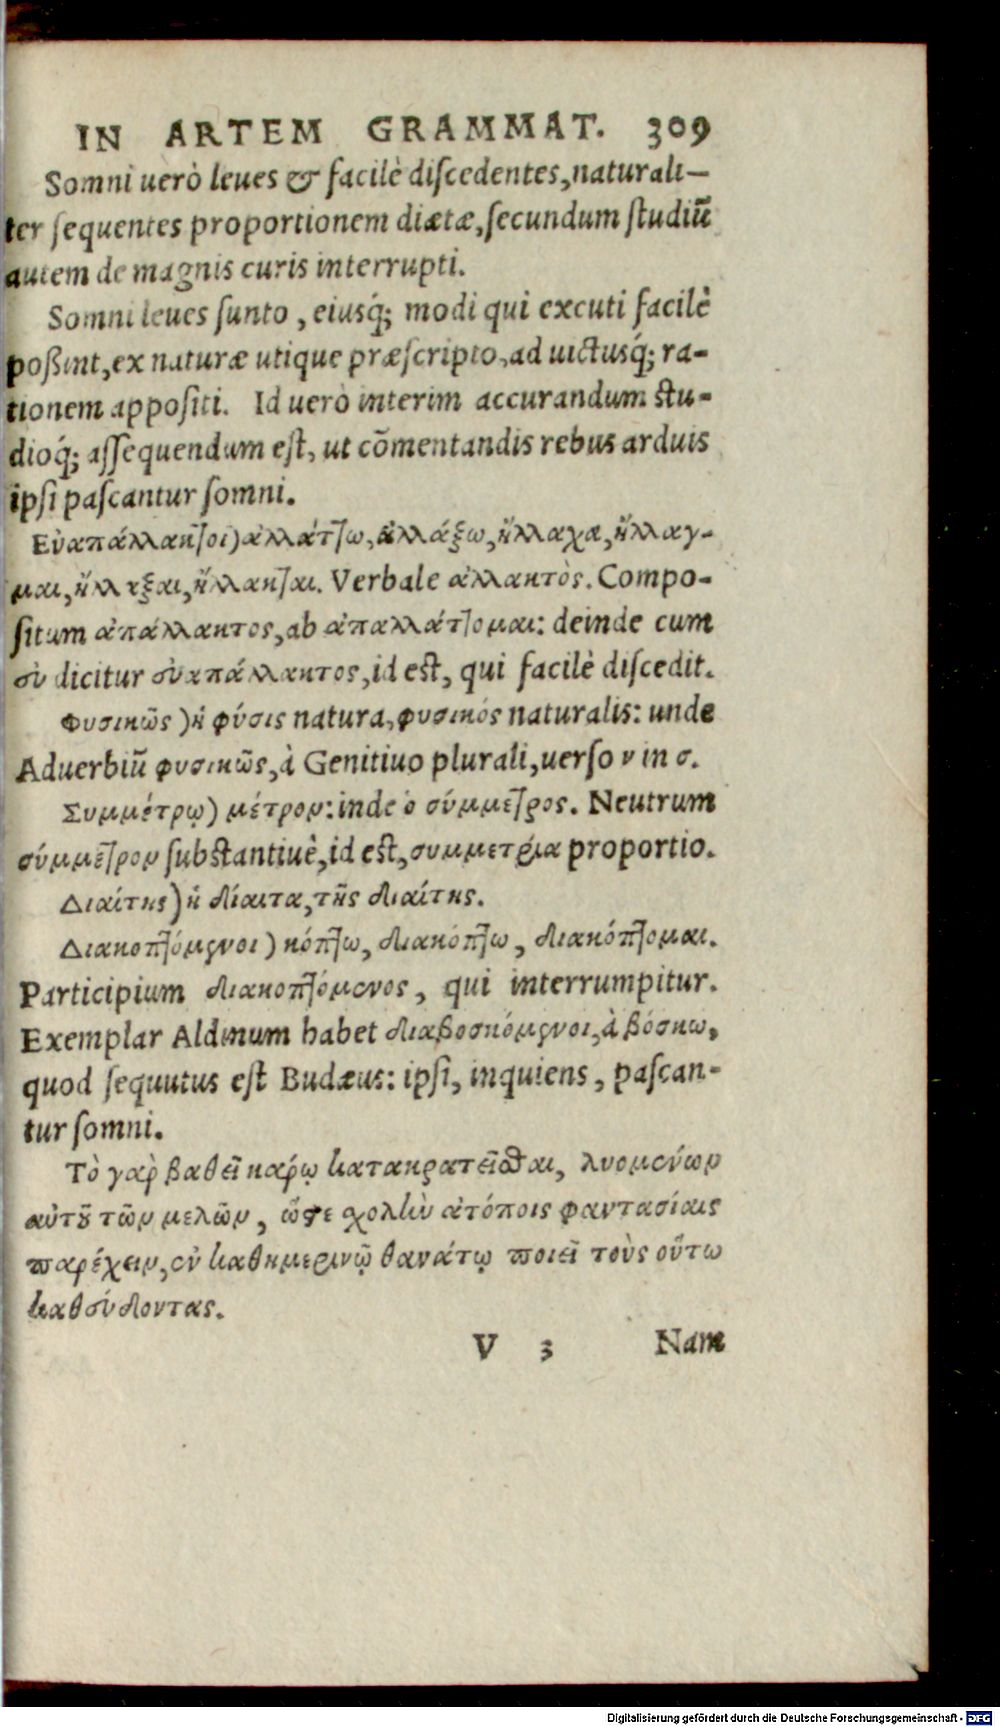 IN ARTEM GRAMMAT. 309
Somni uerò leues & facilè diſcedentes, naturali-
ter ſequentes proportionem diætæ, ſecundum ſtudiũ
autem de magnis curis interrupti.
Somni leues ſunto, eiusq́; modi qui excuti facilè
poßint, ex naturæ utique præſcripto, ad uictusq́; ra-
tionem appoſiti. Id uerò interim accurandum ſtu-
dioq́; aſſequendum eſt, ut cõmentandis rebus arduis
ipſi paſcantur ſomni.
Εὐαπάλλακτοι) ἀλλάττω, ἀλλάξω, ἤλλαχα, ἤλλαγ-
μαι, ἤλλαξαι, ἤλλακται. Verbale ἀλλακτὸς. Compo-
ſitum ἀπάλλακτος, ab ἀπαλλάττομαι: deinde cum
εὐ dicitur εὐαπάλλακτος, id eſt, qui facilè diſcedit.
Φυσικῶς) ἡ φύσις natura, φυσικός naturalis: unde
Aduerbiũ φυσικῶς, à Genitiuo plurali, uerſo ν in σ.
Συμμέτρῳ) μέτρον: inde ὁ σύμμετρος. Neutrum
σύμμετρον ſubſtantiuè, id eſt, συμμετρία proportio.
Διαίτης) ἡ δίαιτα, τῆς διαίτης.
Διακοπτόμενοι) κόπτω, διακόπτω, διακόπτομαι.
Participium διακοπτόμενος, qui interrumpitur.
Exemplar Aldinum habet διαβοσκόμενοι, à βόσκω,
quod ſequutus eſt Budæus: ipſi, inquiens, paſcan-
tur ſomni.
Τὸ γὰρ βαθεῖ κάρῳ κατακρατεῖσθαι, λυομένων
αὐτοῦ τῶν μελῶν, ὥστε σχολὴν ἀτόποις φαντασίαις
παρέχειν, ἐν καθημερινῷ θανάτῳ ποιεῖ τοὺς οὕτω
καθεύδοντας.
V 3 Nam
Digitalisierung gefördert durch die Deutsche Forschungsgemeinschaft - DFG